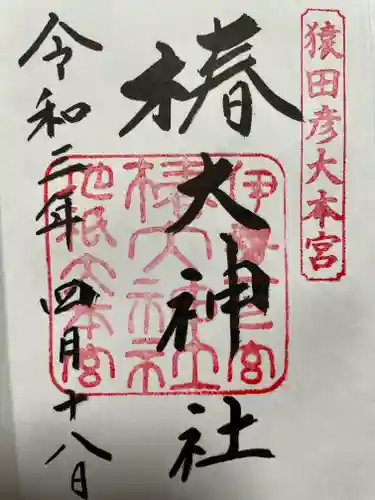 猿田彦大本宮
椿大神社
伊勢一宮
椿大神社
地祇大本宮
令和三年四月十八日